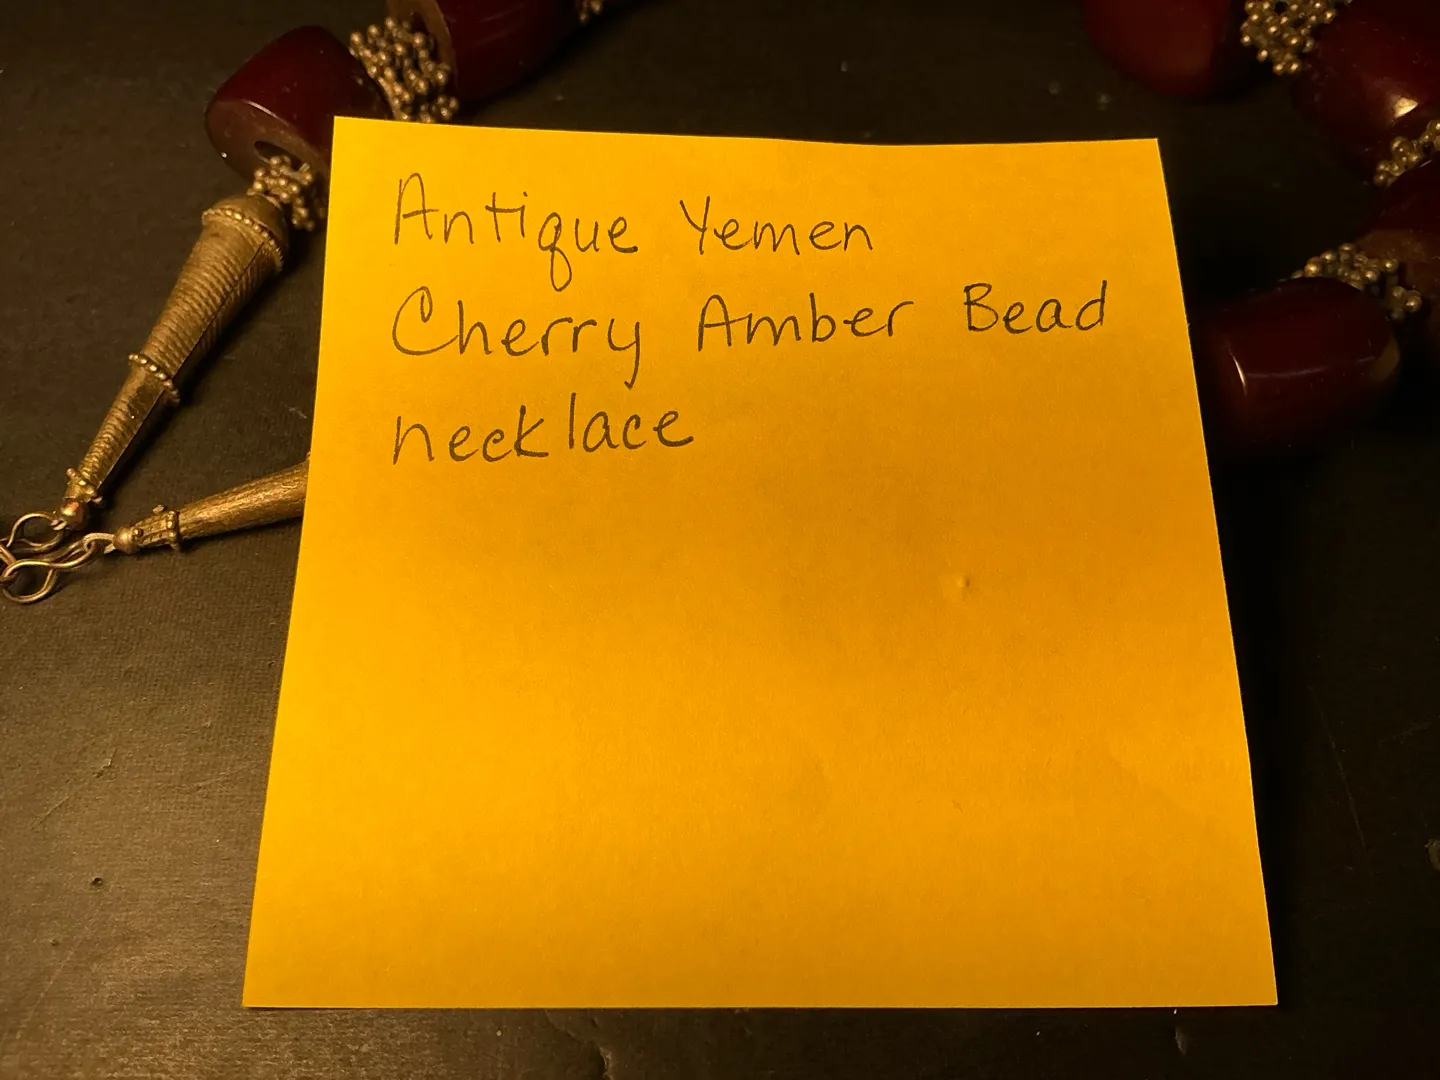 Antique Yemen
Cherry Amber Bead
necklace